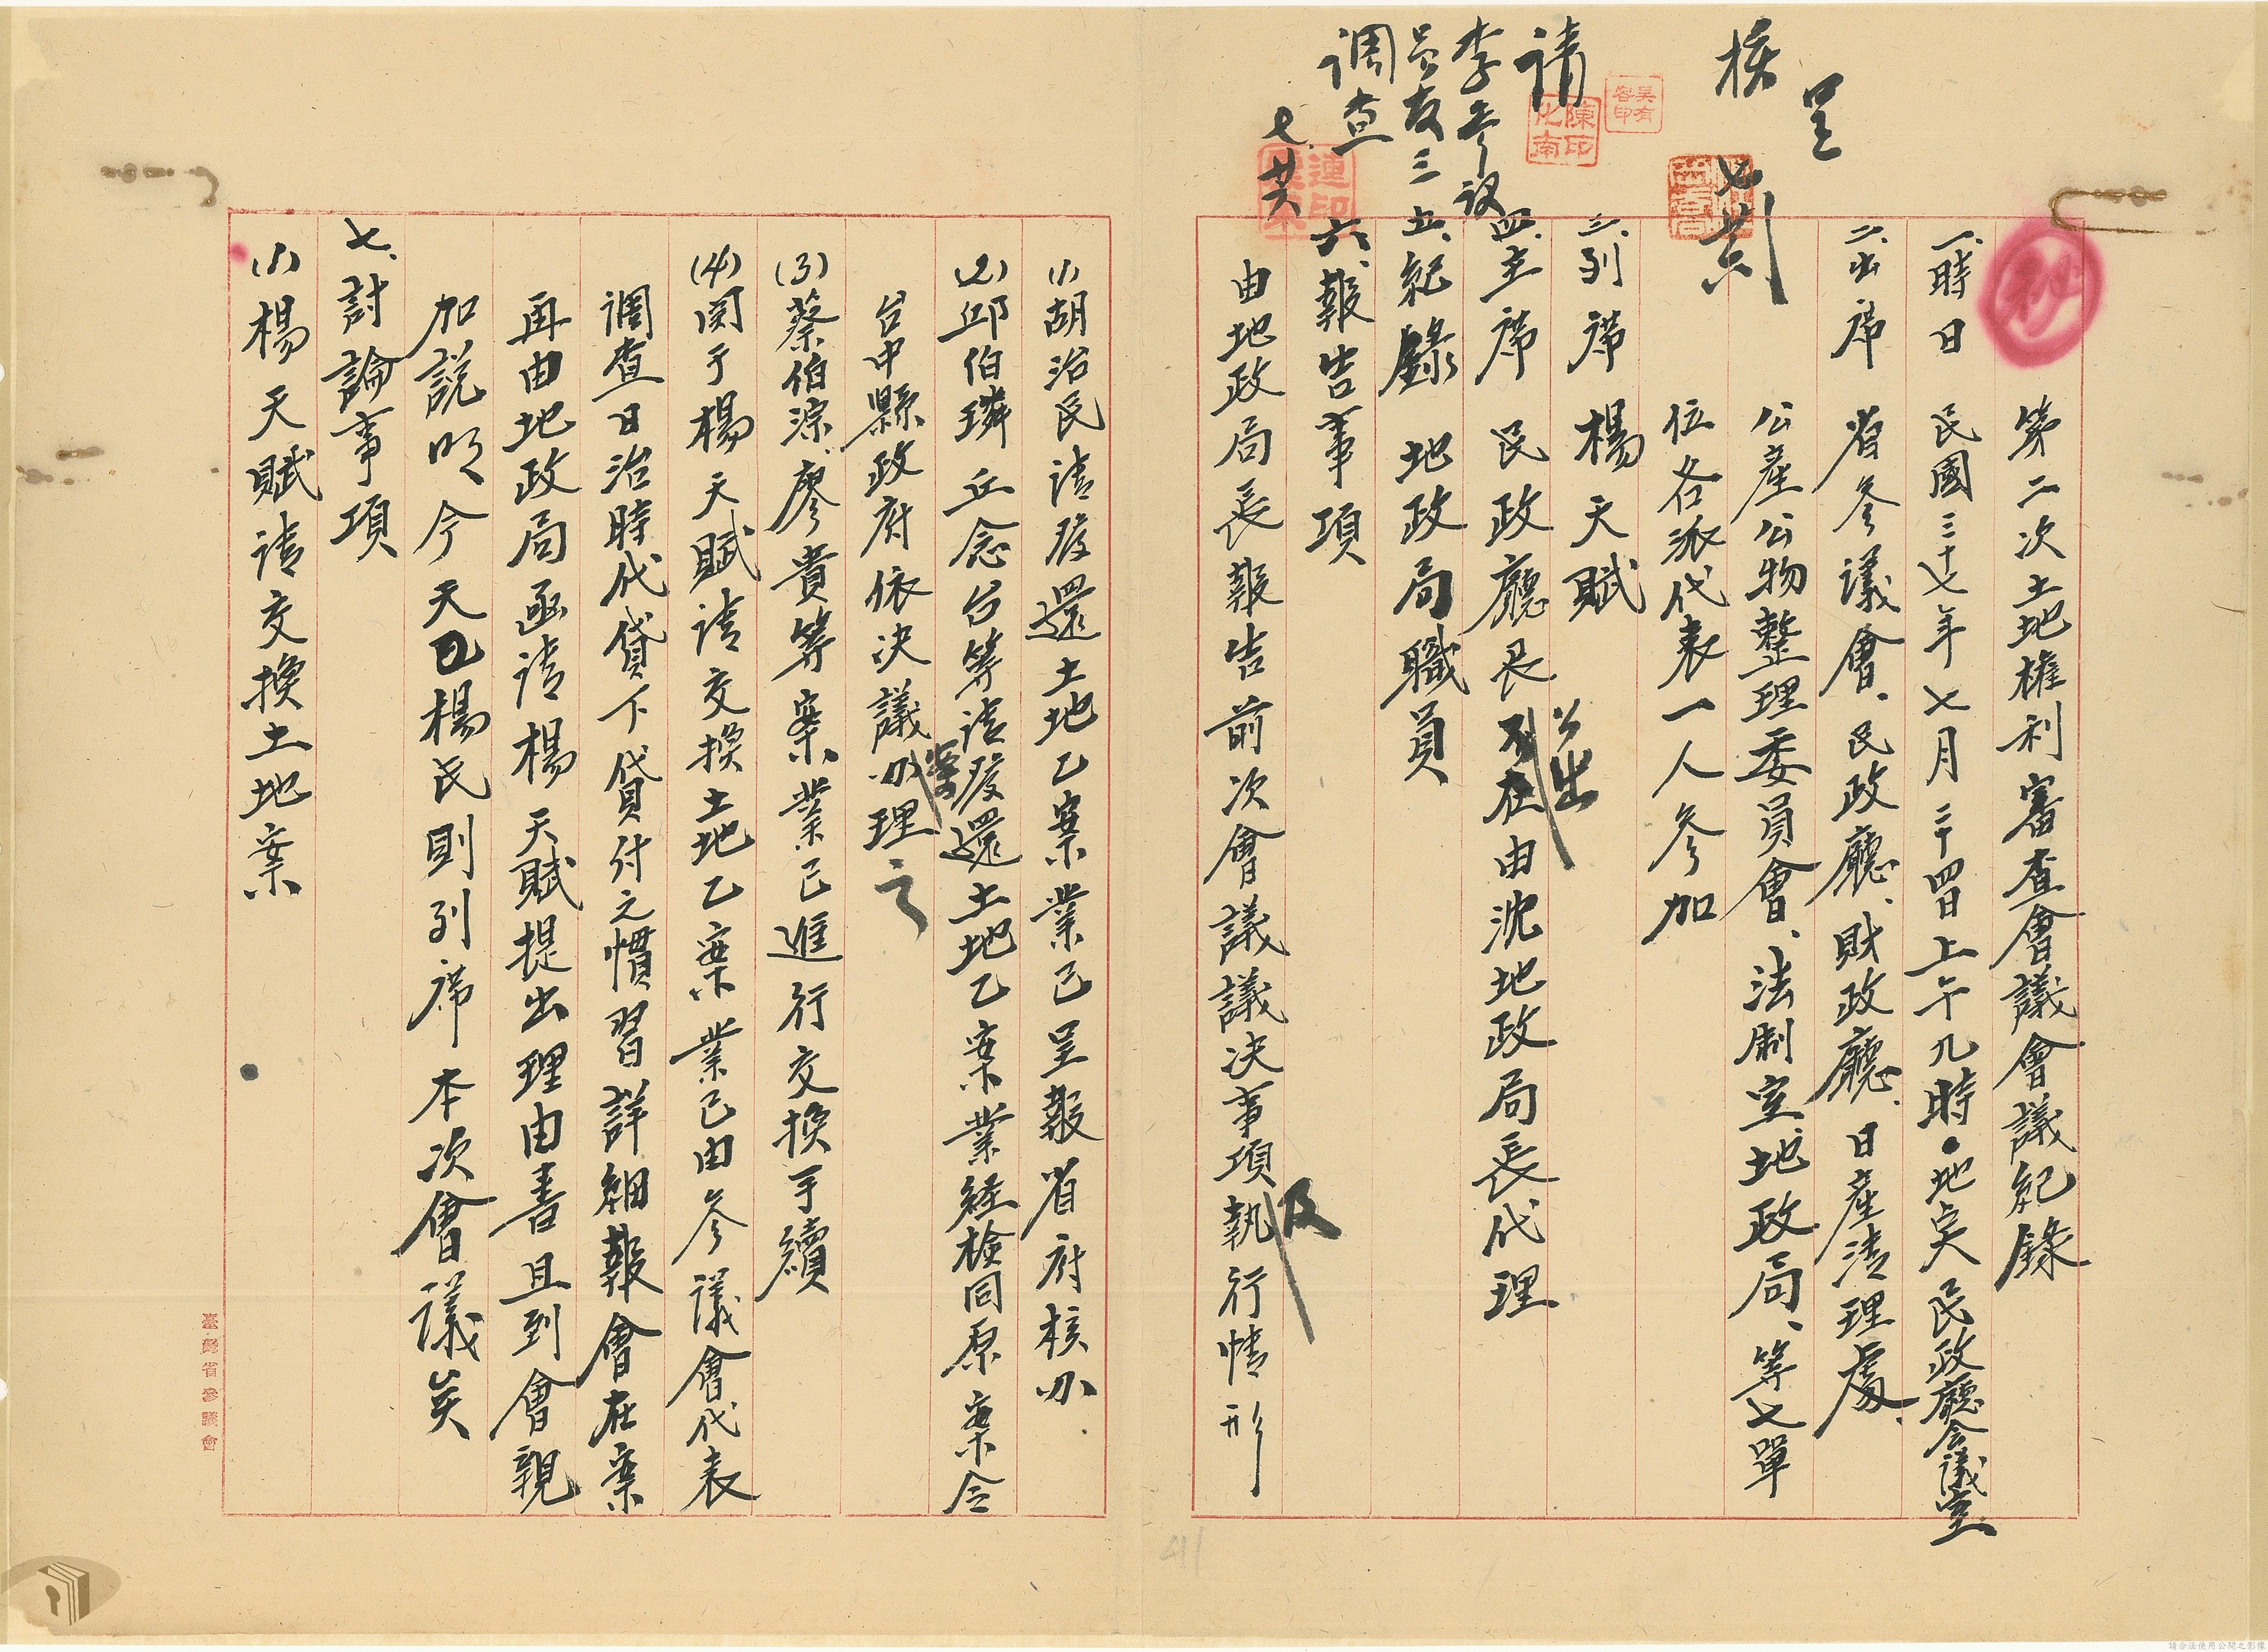 呈
核
七廿六
請
李參議
員友三
調查
七.廿六
吳有容印
陳印化南
秘
第二次土地權利審查會議會議紀錄
一、時日 民國三十七年七月二十四日上午九時·地点民政廳會議室
二、出席 省參議會、民政廳、財政廳、日產清理處、
公產公物整理委員會、法制室、地政局、等七單
位各派代表一人參加
三、列席 楊天賦
四、主席 民政廳長公出不在由沈地政局長代理
五、紀錄 地政局職員
六、報告事項
由地政局長報告前次會議議決事項及執行情形
(1)胡治民請發還土地乙案業已呈報省府核办.
(2)邱伯璘丘念台等請發還土地乙案業経檢同原案令
台中縣政府依決議办理之
(3)蔡伯淙.廖貴等案業已進行交換手續
(4)関于楊天賦請交換土地乙案業已由參議會代表
調查日治時代貸下貸付之慣習詳細報會在案
再由地政局函請楊天賦提出理由書且到會親
加說明今天已楊氏則列席本次會議矣
七、討論事項
(1)楊天賦請交換土地案
臺灣省參議會
41
請合法使用公開之影像